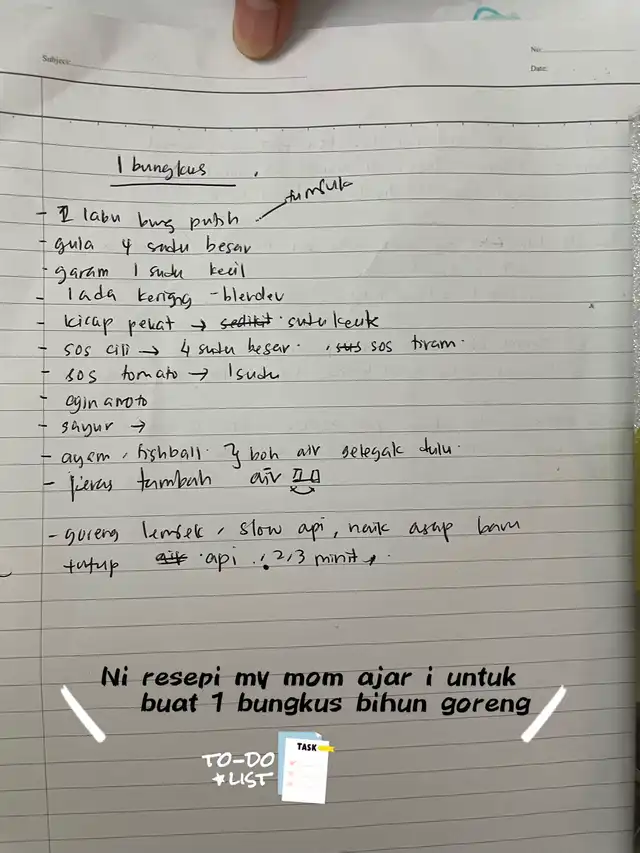 Subject:
No:
Date:
1 bungkus
- 2 labu bwg putih
tumbuk
- gula 4 sudu besar
- garam 1 sudu kecil
- lada kering - blender
- kicap pekat → sedikit. sudu kecik
- sos cili → 4 sudu besar. , sus sos tiram.
- sos tomato → 1 sudu
- ajinamoto
- sayur →
- ayam, fishball } boh air gelegak dulu.
- tambah air
- goreng lembek, slow api, naik asap baru
tutup api . , 2,3 minit
Ni resepi my mom ajar i untuk
buat 1 bungkus bihun goreng
TO-DO
LIST
TASK